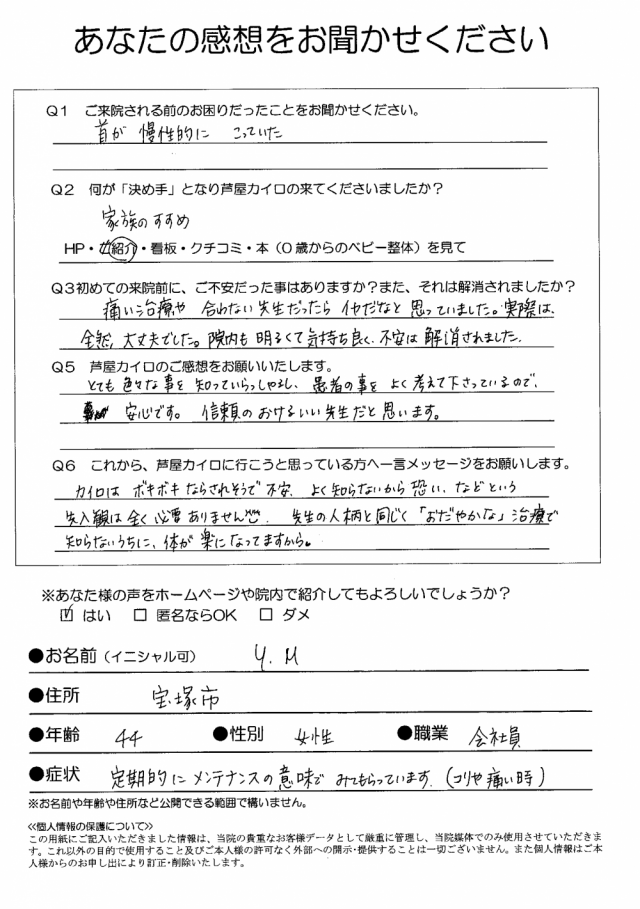 あなたの感想をお聞かせください
Q1 ご来院される前のお困りだったことをお聞かせください。
首が 慢性的に こっていた
Q2 何が「決め手」となり芦屋カイロの来てくださいましたか？
家族のすすめ
HP・紹介・看板・クチコミ・本（０歳からのベビー整体）を見て
Q3初めての来院前に、ご不安だった事はありますか？また、それは解消されましたか？
痛い治療や 合わない先生だったら イヤだなと 思っていました。実際は、
全然 大丈夫でした。院内も 明るくて 気持ち良く、不安は 解消されました。
Q5 芦屋カイロのご感想をお願いいたします。
とても 色々な事を 知っていらっしゃるし、患者の事を よく 考えて下さっているので、
安心です。 信頼の おけるいい先生だと 思います。
Q6 これから、芦屋カイロに行こうと思っている方へ一言メッセージをお願いします。
カイロは ボキボキ ならされそうで 不安、よく知らないから 恐い、などという
先入観は全く必要ありません^^ 先生の人柄と同じく「おだやかな」治療で
知らないうちに、体が 楽になってますから。
※あなた様の声をホームページや院内で紹介してもよろしいでしょうか？
☑ はい □ 匿名ならOK □ ダメ
●お名前（イニシャル可） Y. M
●住所 宝塚市
●年齢 44 ●性別 女性 ●職業 会社員
●症状 定期的に メンテナンスの 意味で みてもらっています。（コリや 痛い時）
※お名前や年齢や住所など公開できる範囲で構いません。
≪個人情報の保護について≫
この用紙にご記入いただきました情報は、当院の貴重なお客様データとして厳重に管理し、当院媒体でのみ使用させていただきま
す。これ以外の目的で使用すること及びご本人様の許可なく外部への開示・提供することは一切ございません。また個人情報はご本
人様からのお申し出により訂正・削除いたします。